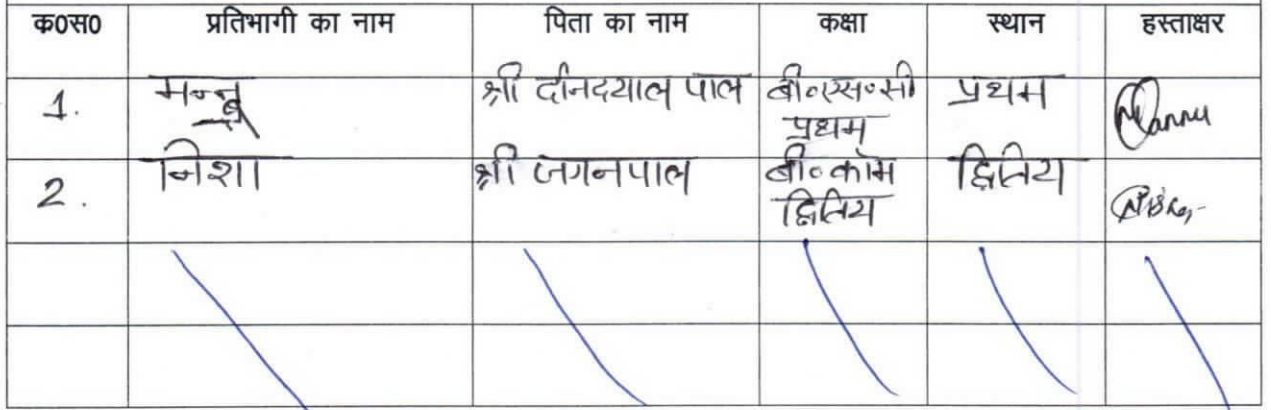 क0स0 प्रतिभागी का नाम पिता का नाम कक्षा स्थान हस्ताक्षर
1. मन्नू श्री दीनदयाल पाल बी०एस०सी प्रथम Mannu
प्रथम
2. निशा श्री जगनपाल बी०कॉम द्वितिय
द्वितिय